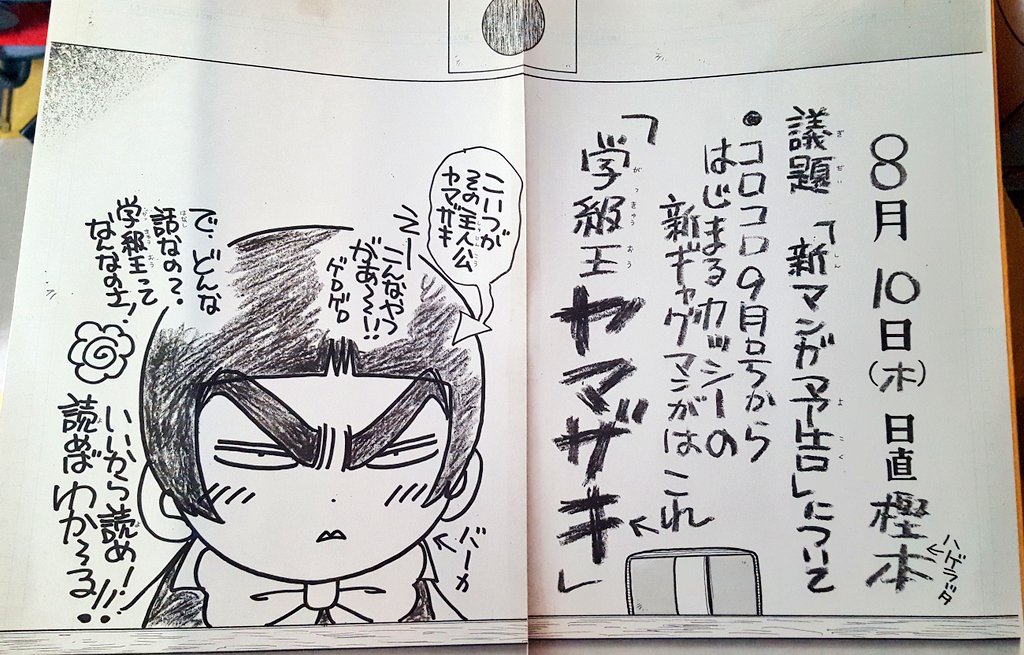 8月10日(木)日直 樫本
ハゲラッタ
議題「新マンガ予告」について
●コロコロ9月号から
はじまるカッシーの
新ギャグマンガは これ
「学級王
ヤマザキ」
こいつが
その主人公
ヤマザキ
えー
こんなやつ
がぁ〜!!
ゲロゲロ
で、どんな
話なの?
学級王って
なんなのさ!
いいから読め!
読めばわか〜る!!
バーカ